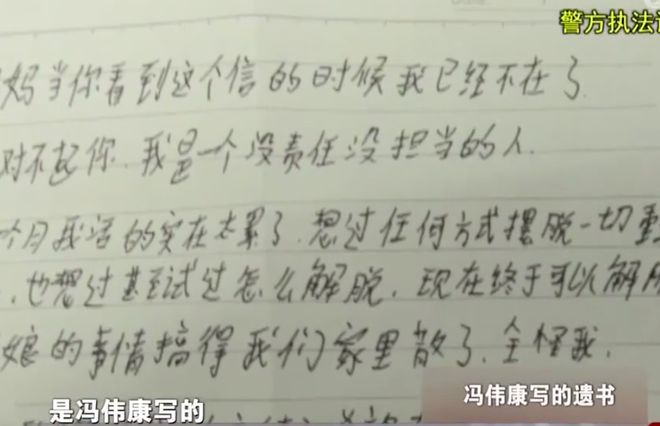 警方执法
妈当你看到这个信的时候我已经不在了
对不起你.我是一个没责任没担当的人.
个月我活的实在太累了.想过任何方式摆脱一切重
,也想过甚至试过怎么解脱.现在终于可以解脱
娘的事情搞得我们家里散了.全怪我.
冯伟康写的遗书
是冯伟康写的